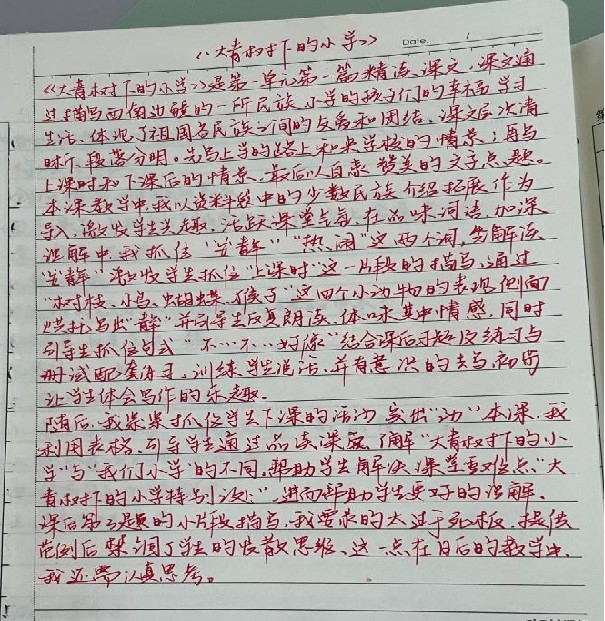 《大青树下的小学》
Date.
《大青树下的小学》是第一单元第一篇精读课文，课文通
过描写西南边疆的一所民族小学的孩子们的幸福学习
生活，体现了祖国各民族之间的友爱和团结。课文层次清
晰，段落分明。先写上学的路上和来学校的情景；再写
上课时和下课后的情景，最后以自豪、赞美的文字点题。
本课教学中，我以资料袋中的少数民族介绍拓展作为
导入，激发学生兴趣，活跃课堂气氛，在品味词语，加深
理解中，我抓住"安静""热闹"这两个词，在解读
"安静"，激发学生抓住"上课时"这一片段的描写，通过
"树枝、小鸟、蝴蝶、猴子"这四个小动物的表现侧面
烘托写出"静"并引导学生反复朗读，体味其中情感，同时
引导学生抓住句式"不…不…好像"结合课后习题及练习与
测试配套练习，训练学生说话，并有意识的去写，初步
让学生体会写作的乐趣。
随后，我紧紧抓住学生下课的活动突出"动"本课，我
利用表格，引导学生通过品读课文，了解"大青树下的小
学"与"我们小学"的不同，帮助学生解决课堂重难点"大
青树下的小学特别之处"，进而帮助学生更好的理解。
课后第三题的小片段描写，我要求的太过于死板，提供
范例后禁锢了学生的发散思维、这一点在日后的教学中，
我还需认真思考。